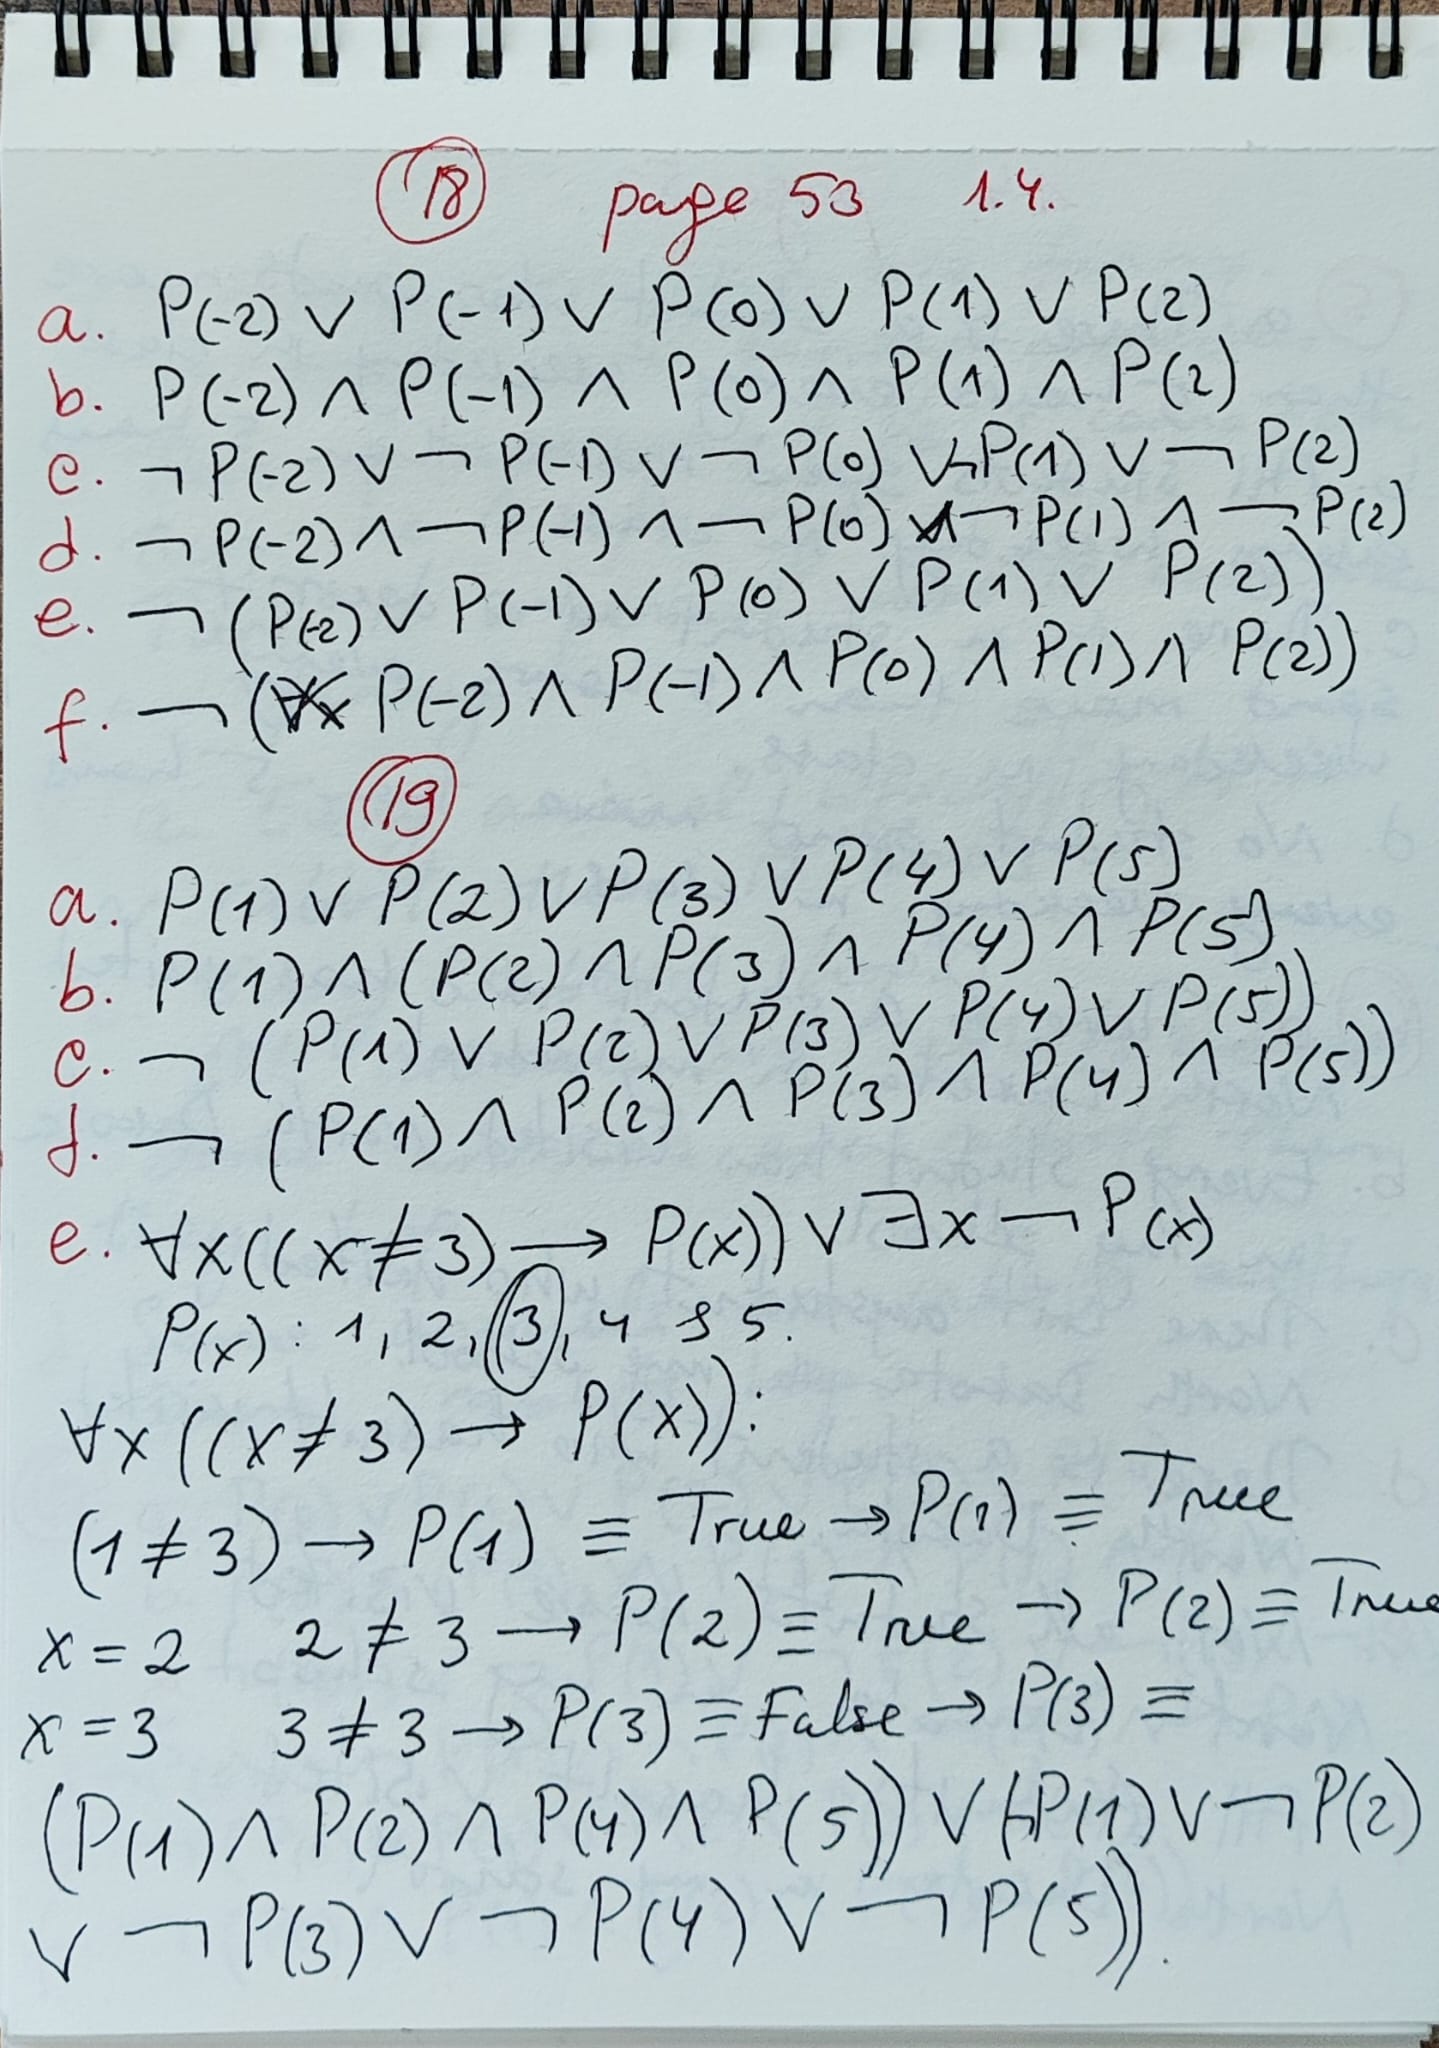 18 page 53 1.4.
a. P(-2) ∨ P(-1) ∨ P(0) ∨ P(1) ∨ P(2)
b. P(-2) ∧ P(-1) ∧ P(0) ∧ P(1) ∧ P(2)
c. ¬P(-2) ∨ ¬P(-1) ∨ ¬P(0) ∨ ¬P(1) ∨ ¬P(2)
d. ¬P(-2) ∧ ¬P(-1) ∧ ¬P(0) ∧ ¬P(1) ∧ ¬P(2)
e. ¬(P(-2) ∨ P(-1) ∨ P(0) ∨ P(1) ∨ P(2))
f. ¬(P(-2) ∧ P(-1) ∧ P(0) ∧ P(1) ∧ P(2))
19
a. P(1) ∨ P(2) ∨ P(3) ∨ P(4) ∨ P(5)
b. P(1) ∧ (P(2) ∧ P(3) ∧ P(4) ∧ P(5)
c. ¬(P(1) ∨ P(2) ∨ P(3) ∨ P(4) ∨ P(5))
d. ¬(P(1) ∧ P(2) ∧ P(3) ∧ P(4) ∧ P(5))
e. ∀x((x≠3) → P(x)) ∨ ∃x¬P(x)
P(x): 1, 2, 3, 4 & 5.
∀x((x≠3) → P(x)):
(1≠3) → P(1) ≡ True → P(1) ≡ True
x = 2 2 ≠ 3 → P(2) ≡ True → P(2) ≡ True
x = 3 3 ≠ 3 → P(3) ≡ False → P(3) ≡
(P(1) ∧ P(2) ∧ P(4) ∧ P(5)) ∨ (¬P(1) ∨ ¬P(2)
∨ ¬P(3) ∨ ¬P(4) ∨ ¬P(5)).